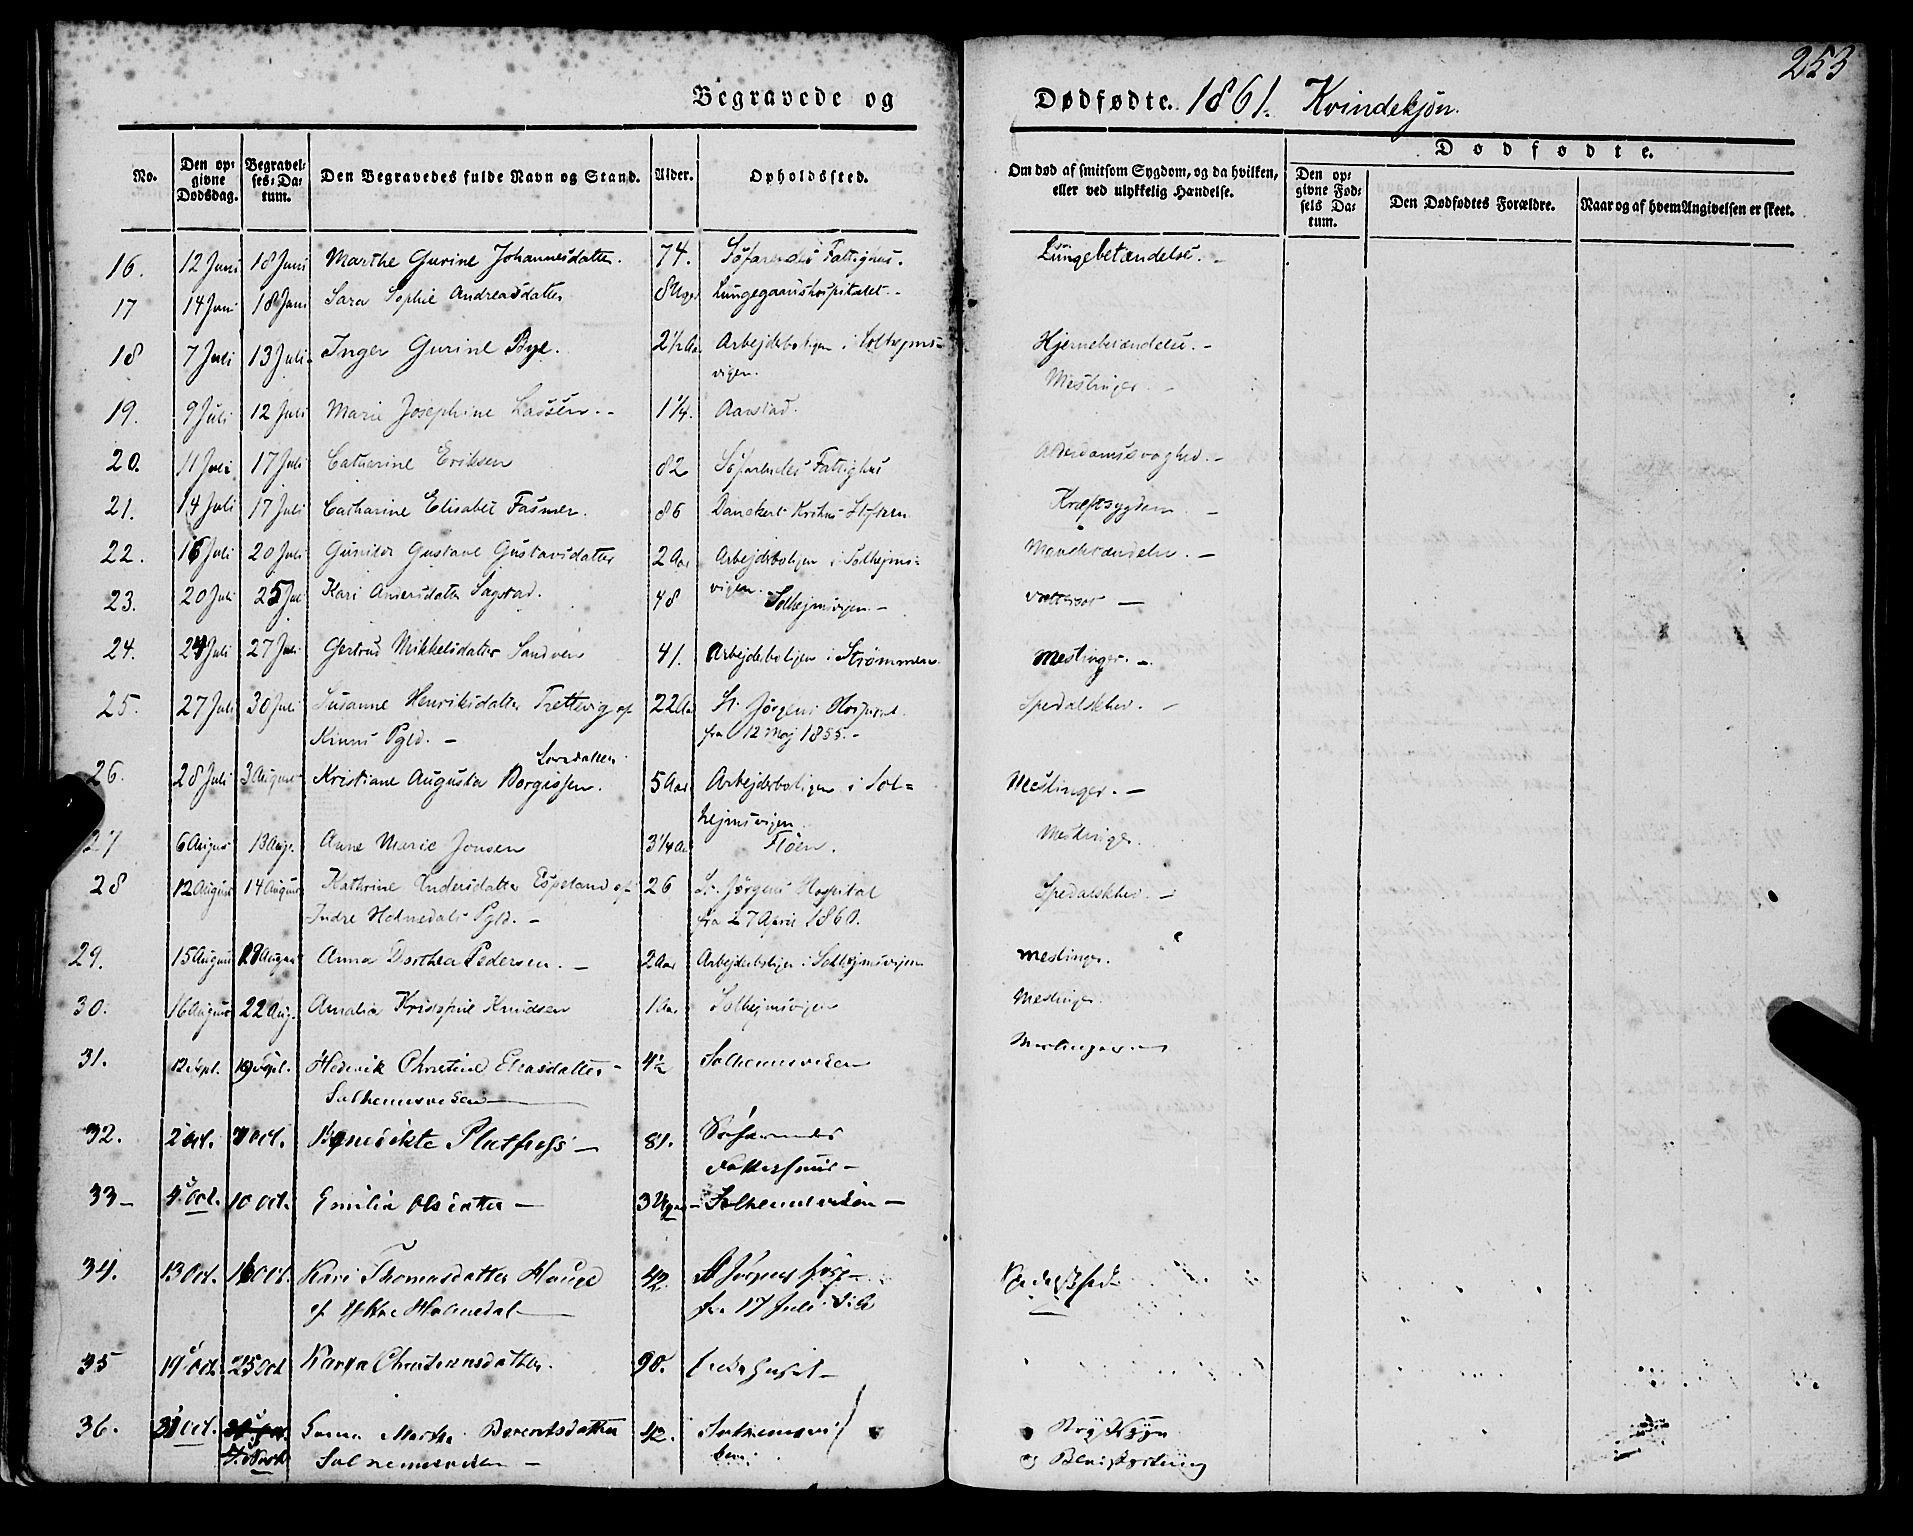 253
Begravede og Dødfødte. 1861. Kvindekjøn.
No.
Den opgivne Dødsdag.
Begravelses-Datum.
Den Begravedes fulde Navn og Stand.
Alder.
Opholdssted.
Om død af smitsom Sygdom, og da hvilken, eller ved ulykkelig Hændelse.
Dødfødte.
Den opgivne Fødsels Datum.
Den Dødfødtes Forældre.
Naar og af hvem Angivelsen er skeet.
16. 12 Juni 18 Juni Marthe Gurine Johannesdatter. 74. Søfarendes Fattighus. Lungebetændelse. -
17 14 Juni 18 Juni Sara Sophie Andreasdatter 8 Uger Lungegaardshospitalet. -
18 7 Juli 13 Juli Inger Gurine Bye. 2 1/2 Aar Arbejderboligen i Solhejms- Hjernebetændelse. -
vigen.
19. 9 Juli 12 Juli Marie Josephine Lassen. - 1 1/4. Aarstad. Meslinger. -
20. 11 Juli 17 Juli Catharine Eriksen 82 Søfarendes Fattighus Alderdomssvaghed. -
21. 14 Juli 17 Juli Catharine Elisabet Fasmer. 86 Danckert Krohns Stiftelse Kræftsygdom -
22. 16 Juli 20 Juli Gunilde Gustave Gustavsdatter 2 Aar Arbejderboligen i Solhejms-
vigen.
23. 20 Juli 25 Juli Kari Andersdatter Sagstad. 48 Solhejmsvigen. - Vattersot -
24. 24 Juli 27 Juli Gertrud Mikkelsdatter Sandven 41. Arbejderboligen i Strømmen. Meslinger. -
25. 27 Juli 30 Juli Susanne Henriksdatter Trettevig af 22 Aar St. Jørgens Hospital Spedalskhed. -
Kinns Pgld. - fra 12 Maj 1855. -
26. 28 Juli 3 August Kristiane Augusta Borgissen. 5 Aar Arbejderboligen i Sol= Meslinger. -
hejmsvigen
27 6 August 13 Aug. Anne Marie Jonsen 3 1/4 Aar Fløen. Meslinger.
28 12 August 14 August Kathrine Andersdatter Espeland af 26 St. Jørgens Hospital Spedalskhed. -
Indre Holmedals Pgld. - fra 27 April 1860.
29. 15 August August Anna Dorthea Pedersen. - 2 Aar Arbejderboligen i Solhejmsvigen Meslinger.
30. 16 August 22 Aug. Amalia Knudsen 1 Aar Solhejmsvigen Meslinger.
31. 12 Sept. 19 Sept. Hedevik Christine Eliasdatter - 4 1/2 Solhemsviken Meslinger. -
Solhemsviken -
32. 2 Oct. 7 Oct. Benedikte - 81. Søfarendes
Fattighuus -
33 - Oct. 10 Oct. Emilia Olsdatter - 3 Uger - Solhemsviken -
34. 13 Oct. 16 Oct. Kari Thomasdatter Hauge 42. St Jørgens Hosp - Spedalskhed
af Yttre Holmedal - fra 17 Juli
35 19 Oct. 25 Oct. Karen Christensdatter. 90.
36. 31 Oct. Marthe Berentsdatter 42. Solhemsvi
Solhemsviken - ken. og